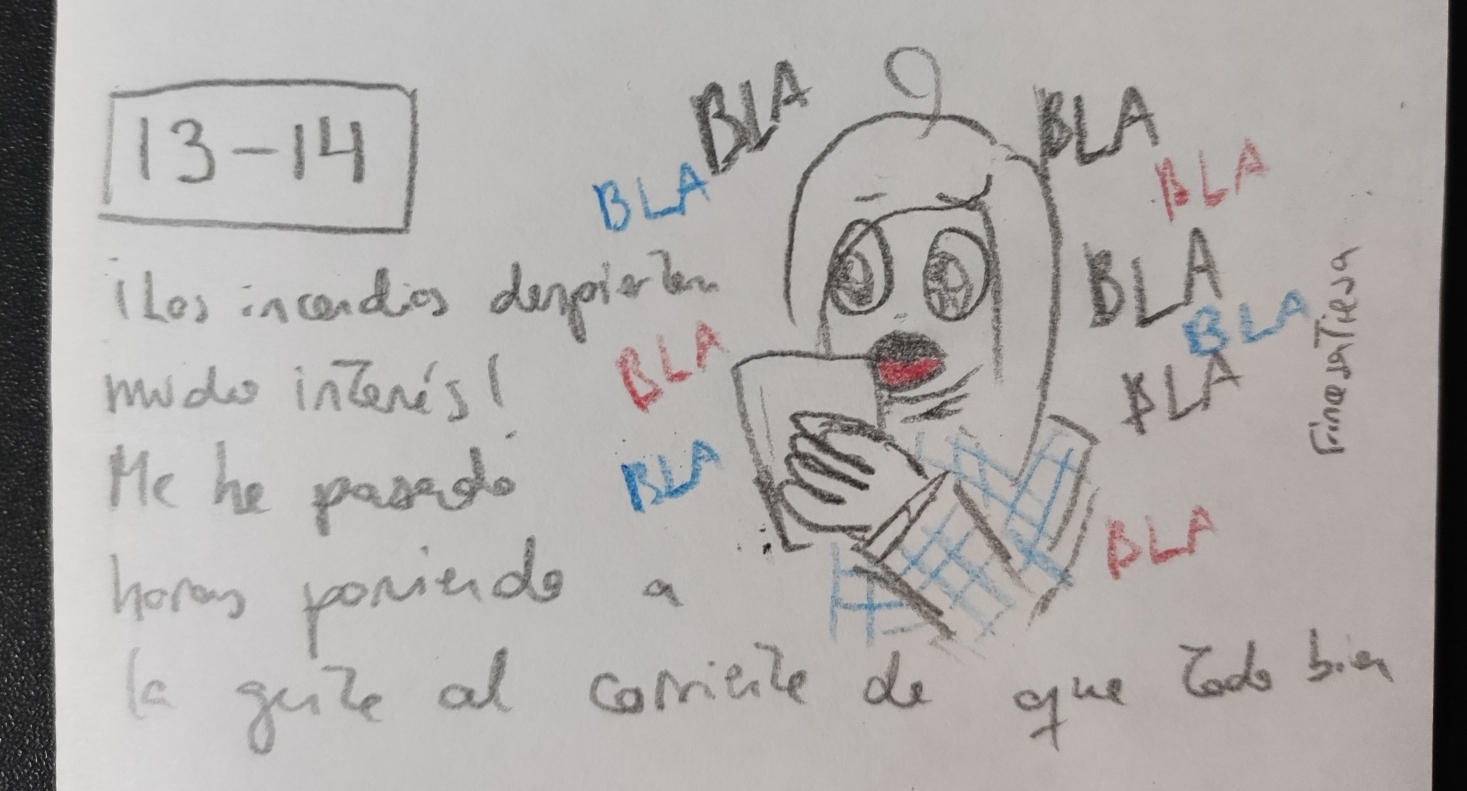 13-14
BLA
BLA
BLA
BLA
¡Los incendios despiertan
mucho interés!
Me he pasado
horas poniendo a
la gente al corriente de que todo bien
BLA
BLA
BLA
BLA
BLA
BLA
BLA
FincesaTiesa